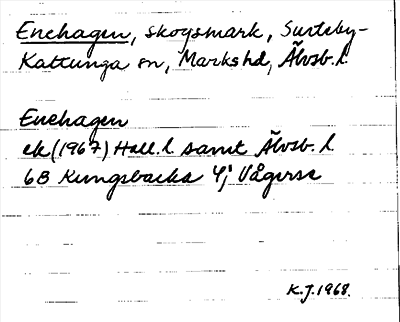 Enehagen, skogsmark, Surteby-
Kattunga sn, Marks hd, Älvsb. l.
Enehagen
ek (1967) Hall. l. samt Älvsb. l
6B Kungsbacka
K.J. 1968.